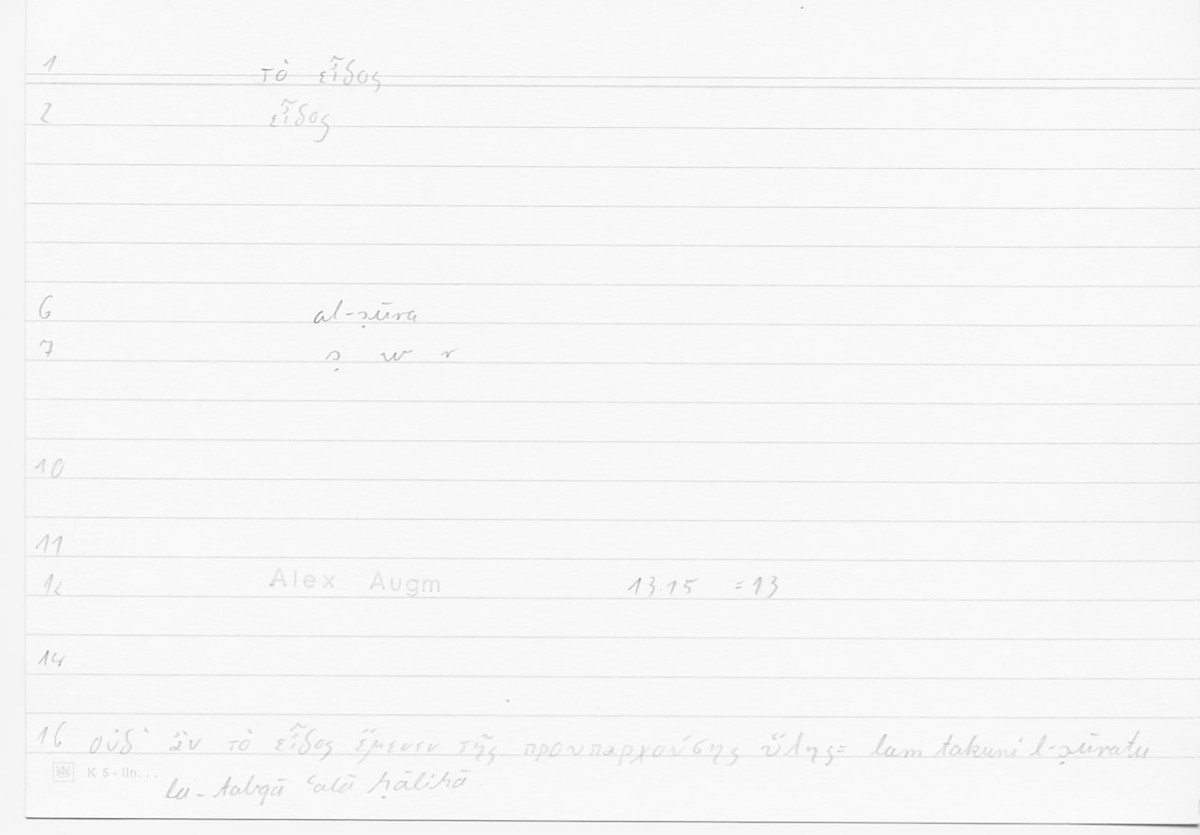 1 τὸ εἶδος
2 εἶδος
6 al-ṣūra
7 ṣ w r
10
11
12 Alex Augm 13.15 =13
14
16 οὐδ᾽ ἂν τὸ εἶδος ἔμενεν τῆς προυπαρχούσης ὕλης= lam takuni l-ṣūratu
K 5 - lin...
la-tabqā ʿalā ḥālihā